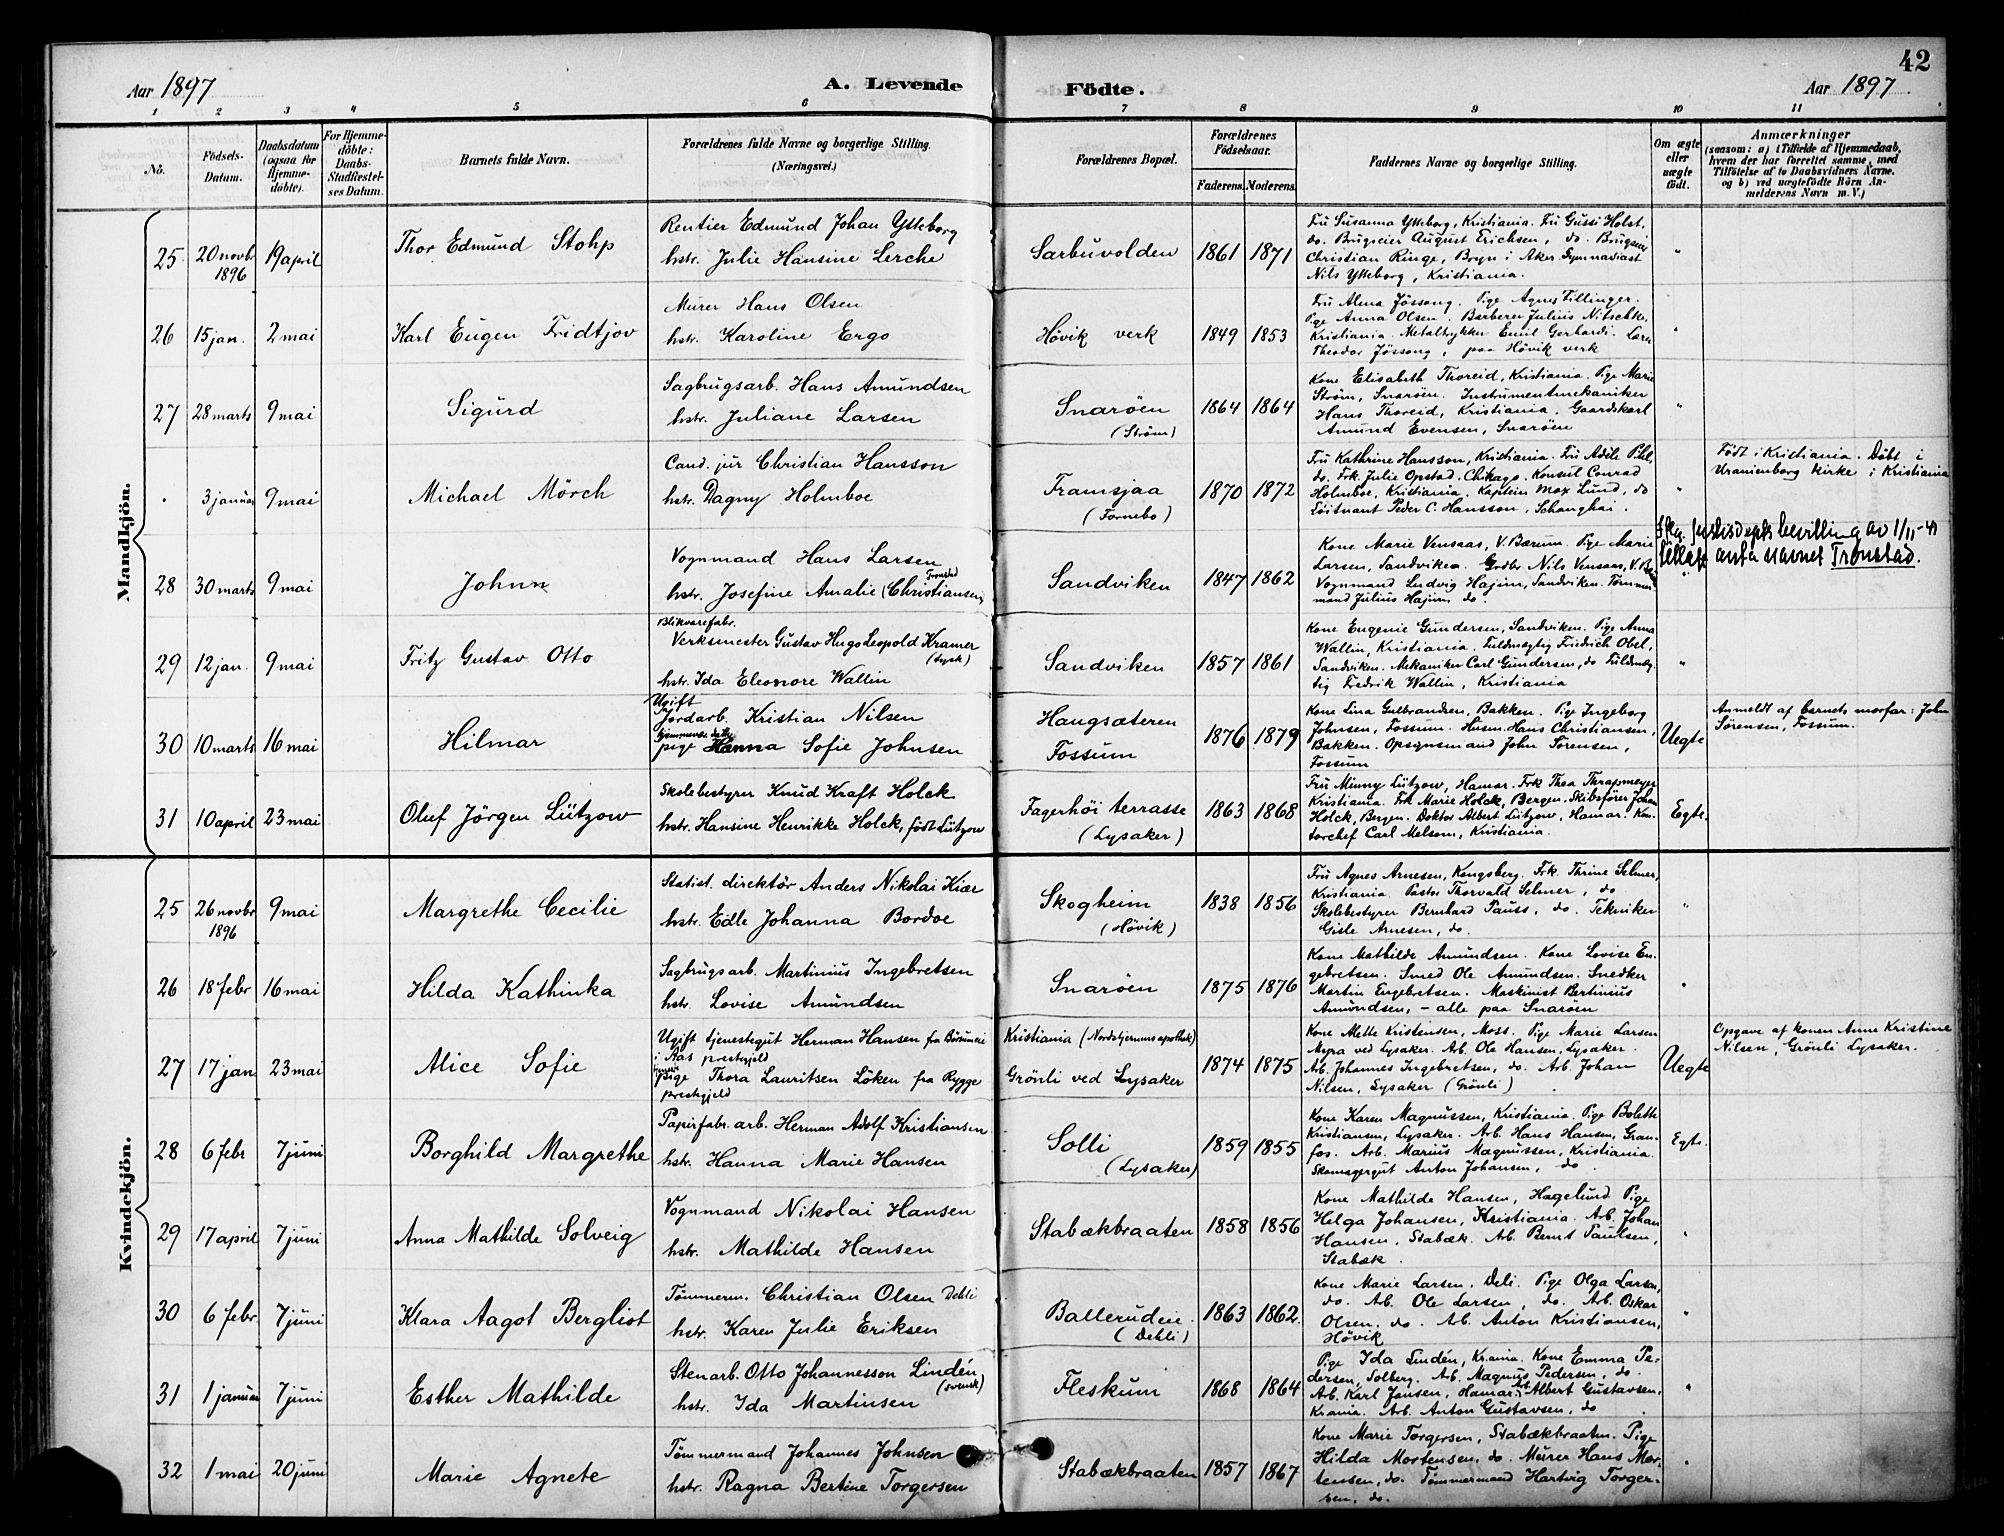 42
Aar 1897
A. Levende
Födte.
Aar 1897
1 2 3 4 5 6 7 8 9 10 11
No.
Födsels-
Datum.
Daabsdatum
(ogsaa for
Hjemme-
döbte).
For Hjemme-
döbte:
Daabs-
Stadfæstel-
ses Datum.
Barnets fulde Navn.
Forældrenes fulde Navne og borgerlige Stilling.
(Næringsvei.)
Forældrenes Bopæl.
Forældrenes
Födselsaar.
Faderens. Moderens.
Faddernes Navne og borgerlige Stilling.
Om ægte
eller
uægte
födt.
Anmærkninger
(saasom: a) i Tilfælde af Hjemmedaab,
hvem der har forrettet samme, med
Tilföielse af to Daabsvidners Navne.
og b) ved uægtefödte Börn An-
melderens Navn m. V.)
Mandkjön.
25 20 novbr 1896 19 april
Thor Edmund Stohp
Rentier Edmund Johan Ytteborg
hstr. Julie Hansine Lerche
Sarbuvolden 1861 1871
Fru Susanna Ytteborg, Kristiania. Fru Gussi Holst,
do. Brugseier August Erichsen, do. Brugseier
Christian Ringe, Bryn i Aker. Gymnasiast
Nils Ytteborg, Kristiania.
"
26 15 jan. 2 mai
Karl Eugen Fridtjov
Murer Hans Olsen
hstr. Karoline Ergo
Hövik verk 1849 1853
Fru Alma Jössang. Pige Agnes Fillinger.
Pige Anna Olsen. Barberer Julius Nitschke,
Kristiania. Metaltrykker Emil Gerhardi. Lærer
Theodor Jössang, paa Hövik verk
"
27 28 marts 9 mai
Sigurd
Sagbrugsarb. Hans Amundsen
hstr. Juliane Larsen
Snaröen
(Ström)
1864 1864
Kone Elisabeth Thoreid, Kristiania. Pige Marie
Ström, Snaröen. Instrumentmekaniker
Hans Thoreid, Kristiania. Gaardskarl
Amund Evensen, Snaröen
"
3 januar 9 mai
Michael Mörch
Cand. jur Christian Hansson
hstr. Dagny Holmboe
Framsjaa
(Fornebo)
1870 1872
Fru Kathrine Hansson, Kristiania. Fru Adele Pihl,
do. Frk. Julie Opstad, Chikago. Konsul Conrad
Holmboe, Kristiania. Kaptein Max Lund, do
Löitnant Peder C. Hansson, Schanghai.
"
Födt i Kristiania. Döbt i
Uranienborg kirke i Kristiania
28 30 marts 9 mai
Johnn
Vognmand Hans Larsen
Tronstad
hstr. Josefine Amalie (Christiansen)
Sandviken 1847 1862
Kone Marie Vensaas, V. Bærum. Pige Marie
Larsen, Sandviken. Grdbr. Nils Vensaas, V. Bær
Vognmand Ludvig Hajum, Sandviken. Tömmer-
mand Julius Hajum, do.
justisdepts bevilling av 1/11-41
tillatt anta navnet Tronstad.
29 12 jan. 9 mai
Fritz Gustav Otto
Blikvarefabr.
Verksmester Gustav Hugo Leopold Kramer
(tysk)
hstr. Ida Eleonore Wallin
Sandviken 1857 1861
Kone Eugenie Gundersen, Sandviken. Pige Anna
Wallin, Kristiania. Fuldmægtig Friedrich Obel,
Sandviken. Mekaniker Carl Gundersen, do. Fuldmæg-
tig Fredrik Wallin, Kristiania
"
30 10 marts 16 mai
Hilmar
Ugift
Jordarb. Kristian Nilsen
pige Hanna Sofie Johnsen
Haugsæteren
Fossum
1876 1879
Kone Lina Gulbrandsen, Bakken. Pige Ingeborg
Johnsen, Fossum. Husm. Hans Christiansen,
Bakken. Opsynsmand John Sörensen,
Fossum
Uegte
Anmeldt af barnets morfar: John
Sörensen, Fossum.
31 10 april 23 mai
Oluf Jörgen Lützow
Skolebestyrer Knud Kraft Holck
hstr. Hansine Henrikke Holck, födt Lützow
Fagerhöi terrasse
(Lysaker)
1863 1868
Fru Minny Lützow, Hamar. Frk Thea Thrapmeyer
Kristiania. Frk Marie Holck, Bergen. Skibsförer Johan
Holck, Bergen. Doktor Albert Lützow, Hamar. Kon-
torchef Carl Melsom, Kristiania.
Egte.
Kvindekjön.
25 26 novbr 1896 9 mai
Margrethe Cecilie
Statist. direktör Anders Nikolai Kiær
hstr. Edle Johanna Bordoe
Skogheim
(Hövik)
1838 1856
Fru Agnes Arnesen, Kongsberg. Frk. Thrine Selmer,
Kristiania. Pastor Thorvald Selmer, do
Skolebestyrer Bernhard Pauss, do. Tekniker
Gisle Arnesen, do.
"
26 18 febr 16 mai
Hilda Kathinka
Sagbrugsarb. Martinius Ingebretsen
hstr. Lovise Amundsen
Snaröen 1875 1876
Kone Mathilde Amundsen. Kone Lovise En-
gebretsen. Smed Ole Amundsen. Snedker
Martin Engebretsen. Maskinist Bertinius
Amundsen, - alle paa Snaröen
"
27 17 jan 23 mai
Alice Sofie
Ugift tjenestegut Herman Hansen fra
i Aas prestgjeld
pige Thora Lauritsen Löken fra Rygge
prestgjeld
Kristiania (Nordstjernens apothek)
Grönli ved Lysaker
1874 1875
Kone Alette Kristensen, Moss. Pige Marie Larsen
Myra ved Lysaker. Arb. Ole Hansen, Lysaker.
Arb. Johannes Ingebretsen, do. Arb. Johan
Nilsen, Lysaker (Grönli)
Uegte
Opgave af konen Anne Kristine
Nilsen, Grönli Lysaker.
28 6 febr 7 juni
Borghild Margrethe
Papirfabr. arb. Herman Adolf Kristiansen
hstr. Hanna Marie Hansen
Solli
(Lysaker)
1859 1855
Kone Karen Magnussen, Kristiania. Pige Bolethe
Kristiansen, Lysaker. Arb. Hans Hansen, Gran-
fos. Arb. Marius Magnussen, Kristiania.
Skomagergut Anton Johansen, do.
Egte.
29 17 april 7 juni
Anna Mathilde Solveig
Vognmand Nikolai Hansen
hstr. Mathilde Hansen
Stabækbraaten 1858 1856
Kone Mathilde Hansen, Hagelund Pige
Helga Johansen, Kristiania. Arb. Johan
Hansen, Stabæk. Arb. Bernt Paulsen,
Stabæk.
"
30 6 febr. 7 juni
Klara Aagot Bergliot
Tömmerm. Christian Olsen Dehli
hstr. Karen Julie Eriksen
Ballerudeie.
(Dehli)
1863 1862.
Kone Marie Larsen, Deli. Pige Olga Larsen,
do. Arb. Ole Larsen, do. Arb. Oskar
Olsen, do. Arb. Anton Kristiansen,
Hövik
"
31 1 januar 7 juni
Esther Mathilde
Stenarb. Otto Johannesson Lindén
(svensk)
hstr. Ida Martinsen
Fleskum 1868 1864
Pige Ida Lindén, Krania. Kone Emma Pe-
dersen, Solberg. Arb. Magnus Pedersen, do.
Arb. Karl Jensen, Hamar. Arb. Albert Gustavsen,
Krania. Arb. Anton Gustavsen, do
"
32 1 mai 20 juni
Marie Agnete
Tömmermand Johannes Johnsen
hstr. Ragna Bertine Torgersen
Stabækbraaten 1857 1867
Kone Marie Torgersen, Stabækbraaten. Pige
Hilda Mortensen, do. Murer Hans Mor-
tensen, do. Tömmermand Hartvig Torger-
sen, do.
"